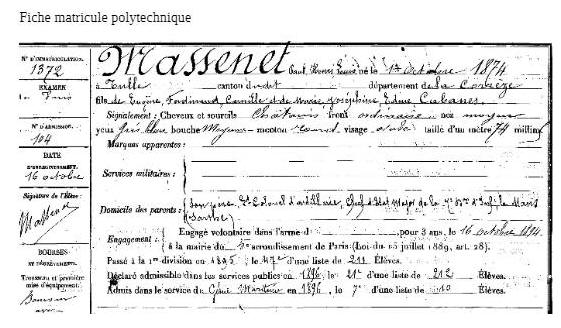 Fiche matricule polytechnique
N° D'IMMATRICULATION.
1372
EXAMEN
de Paris
N° D'ADMISSION.
104
DATE
16 octobre
Signature de l'Élève:
Massenet
BOURSES
ET DEMI-BOURSES.
TROUSSEAU et première
mise d'équipement.
Massenet Paul né le 1er octobre 1874
à Tulle canton dudit département de la Corrèze
fils de Eugène, Ferdinand, Camille et de Marie Joséphine Cabanes.
Signalement: Cheveux et sourcils Châtains front ordinaire nez moyen
yeux Gris bleu bouche Moyenne menton rond visage ovale taille d'un mètre 74 millim
Marques apparentes:
Services militaires:
Domicile des parents: Son père, Lt Colonel d'artillerie, Chef d'Etat Major de la le Mans
(Sarthe)
Engagement: Engagé volontaire dans l'arme d pour 3 ans, le 16 octobre 1894.
à la mairie du 5e arrondissement de Paris (Loi du 15 juillet 1889, art. 28).
Passé à la 1re division en 1895, le 47e d'une liste de 211 Élèves.
Déclaré admissible dans les services publics en 1896, le 21e d'une liste de 212 Élèves.
Admis dans le service de Génie Maritime en 1896, le 7e d'une liste de 10 Élèves.